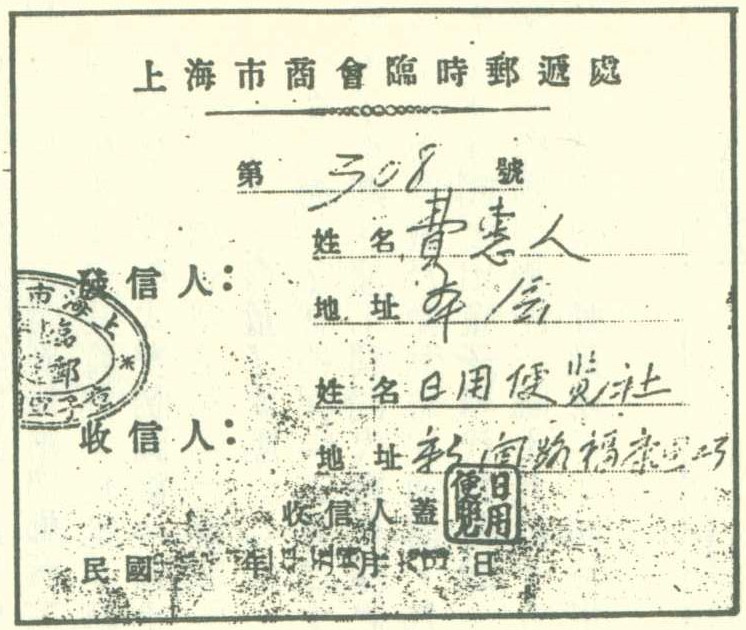 上海市商會臨時郵遞處
第 308 號
發信人：
姓名 費憲人
地址 本会
收信人：
姓名 日用便览社
地址 新闸路福康里
收信人蓋
日用便覽
民國 年 月 日
上海市
臨
郵